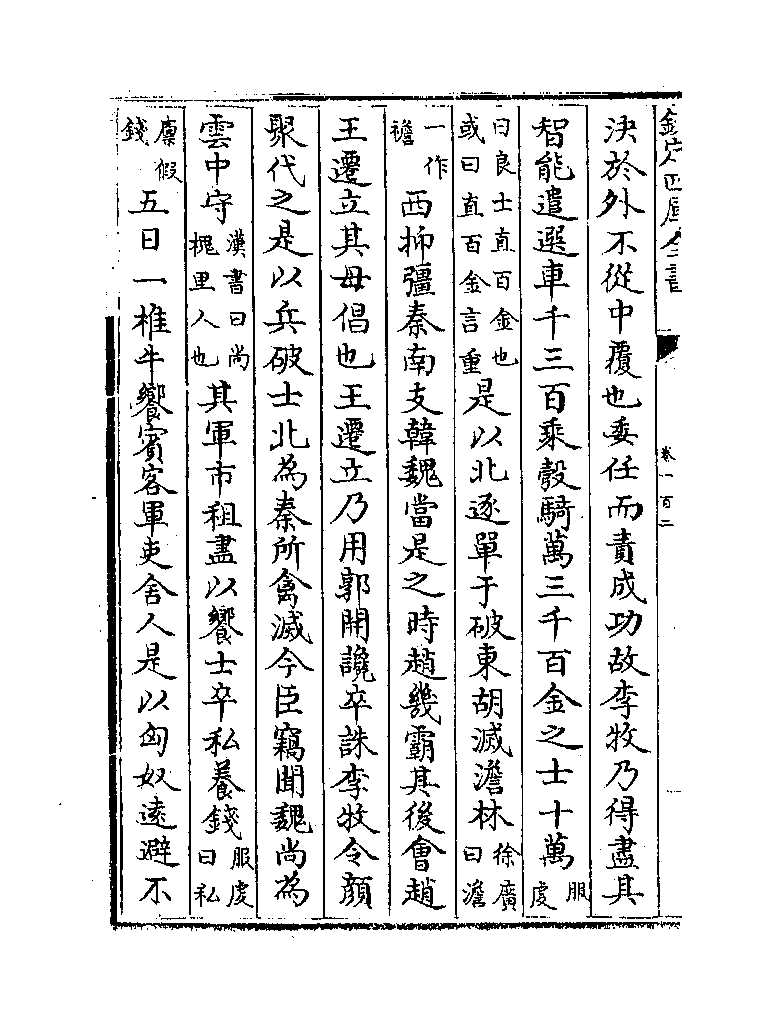 欽定四庫全書
卷一百二
決於外不從中覆也委任而責成功故李牧乃得盡其
智能遣選車千三百乘彀騎萬三千百金之士十萬服虔
曰良士直百金也或曰直百金言重是以北逐單于破東胡滅澹林徐廣曰澹
一作襜西抑彊秦南支韓魏當是之時趙幾霸其後會趙
王遷立其母倡也王遷立乃用郭開讒卒誅李牧令顔
聚代之是以兵破士北為秦所禽滅今臣竊聞魏尚為
雲中守漢書曰尚槐里人也其軍市租盡以饗士卒私養錢服虔曰私
廪假錢五日一椎牛饗賓客軍吏舍人是以匈奴遠避不